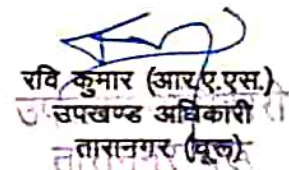 रवि कुमार (आर.ए.एस.)
उपखण्ड अधिकारी
तारानगर (चूरू)